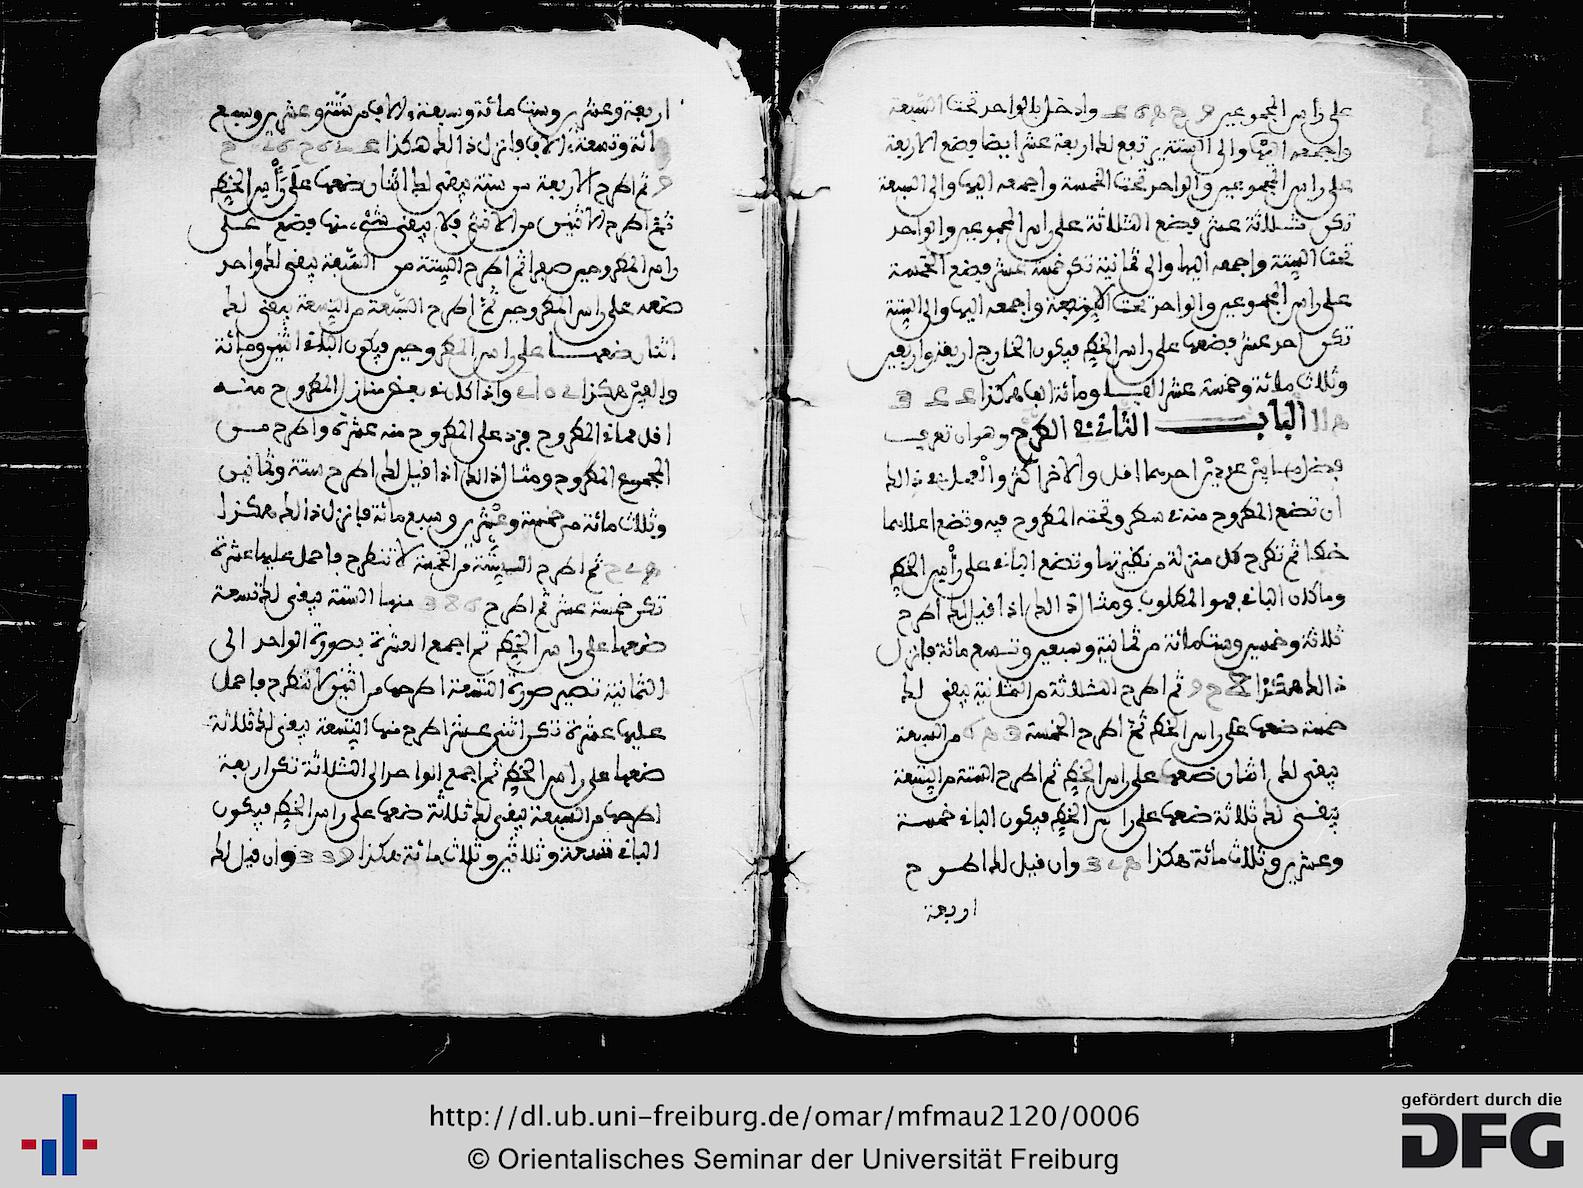 على رأس المجموعين وادخل بالواحد تحت السبعة
واجمعه اليها والى الستة يرتفع لك اربعة عشر ايضا فضع الاربعة
على راس المجموعين والواحد تحت الخمسة واجمعه اليها والى السبعة
تكن ثلاثة عشر فضع الثلاثة على راس المجموعين والواحد
تحت الستة واجمعه اليها والى ثمانية تكن خمسة عشر فضع الخمسة
على راس المجموعين والواحد تحت الاربعة واجمعه اليها والى الستة
تكن احد عشر فضعها على راس الخط فيكون الخارج اربعة واربعين
وثلاث مائة وخمسة عشر الفا ومائة الف هكذا
الباب الثاني في الطرح وهو ان تعرف
فضل ما بين عددين احدهما اقل والاخر اكثر والعمل في ذالك
ان تضع المطروح منه في سطر وتحته المطروح فيه وتضع اعلاهما
خطا ثم تطرح كل منزلة من نظيرتها وتضع الباقي على رأس الخط
وما كان الباقي فهو المطلوب ومثال ذالك اذا قيل لك اطرح
ثلاثة وخمسين وست مائة من ثمانية وسبعين وتسع مائة فانزل
ذالك هكذا ثم اطرح الثلاثة من الثمانية يبقى لك
خمسة ضعها على راس الخط ثم اطرح الخمسة من السبعة
يبقى لك اثنان ضعها على راس الخط ثم اطرح الستة من التسعة
يبقى لك ثلاثة ضعها على راس الخط فيكون الباقي خمسة
وعشرين وثلاث مائة هكذا وان قيل لك اطرح
اربعة
اربعة وعشرين وست مائة وسبعة الاف من ستة وعشرين وسبع
مائة وتسعة الاف فانزل ذالك هكذا
ثم اطرح الاربعة من ستة يبقى لك اثنان ضعها على رأس الخط
ثم اطرح الاثنين من الاثنين فلا يبقى شيء منها فضع على
راس المطروحين صفرا ثم اطرح الستة من السبعة يبقى لك واحد
ضعه على راس المطروحين ثم اطرح السبعة من التسعة يبقى لك
اثنان ضعها على راس المطروحين فيكون الباقي اثنين ومائة
والفين هكذا واذا كان في بعض منازل المطروح منه
اقل مما في المطروح فزد على المطروح منه عشرة واطرح من
المجموع المطروح ومثال ذالك اذا قيل لك اطرح ستة وثمانين
وثلاث مائة من خمسة وعشرين وسبع مائة فانزل ذالك هكذا
ثم اطرح الستة من الخمسة لا تنطرح فاحمل عليها عشرة
تكن خمسة عشر ثم اطرح 386 منها الستة يبقى لك تسعة
ضعها على راس الخط ثم اجمع العشرة بصورة الواحد الى
الثمانية تصير صورة التسعة اطرحها من اثنين لا تنطرح فاحمل
عليها عشرة تكن اثنى عشر اطرح منها التسعة يبقى لك ثلاثة
ضعها على راس الخط ثم اجمع الواحد الى الثلاثة تكن اربعة
اطرحها من السبعة يبقى لك ثلاثة ضعها على راس الخط فيكون
الباقي تسعة وثلاثين وثلاث مائة هكذا 339 وان قيل لك
http://dl.ub.uni-freiburg.de/omar/mfmau2120/0006
© Orientalisches Seminar der Universität Freiburg
gefördert durch die
DFG